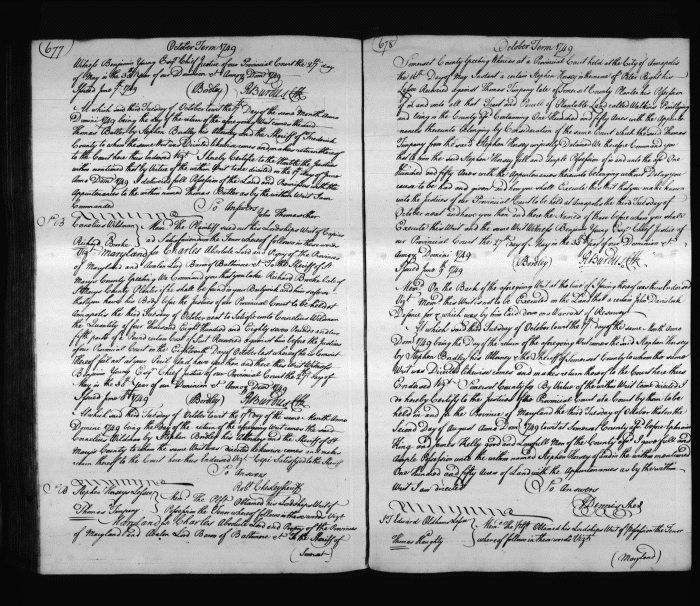 677
October Term 1749
Witness Benjamin Young Esqr Chief Justice of our Provincial Court the 27th day
of May in the 35th Year of our Dominion &c Annoq Domi 1749
Issued June 7th 1749 (Bordley) R Burdus Clk
At which said third Tuesday of October Court the 17th day of the same Month Anno
Domini 1749 being the day of the return of the aforegoing Writ comes the said
Thomas Butler by Stephen Bordley his Attorney and the Sheriff of Frederick
County to whom the same Writ was Directed likewise comes and makes return thereof
to the Court here thus Endorsed Vizt I hereby Certifie to the Honble the Justices
within mentioned that by Virtue of the within Writ to me directed on the day of June
Anno Domi 1749 I delivered full Possession of the Land and Premisses with the
Appurtenances to the within named Thomas Butler as by the within Writ I am
Commanded
So Answers
John Thomas Shff
Cornelius Wildman
Richard Burke
Memd the Plaintiff sued out his Lordships Writ of Capias
ad Satisfaciendum the Tenor whereof follows in these words
Vizt Maryland ss Charles Absolute Lord and Propry of the Province
of Maryland and Avalon Lord Baron of Baltimore &c To the Sheriff of St
Marys County Greeting We Command you that you take Richard Burke late of
St Marys County Planter if he shall be found in your Bailywick and him safe keep
that you have his Body before the Justices of our Provincial Court to be held at
Annapolis the third Tuesday of October next to Satisfie unto Cornelius Wildman
the Quantity of four thousand Eight Hundred and Eighty seven Pounds and two
fifth parts of a Pound
your Provincial Court on the Eighteenth day of October last
thereof fail not at your Peril and have you then and there this Writ Witness
Benjamin Young Esqr Chief Justice of our Provincial Court the 27th day of
May in the 35th Year of our Dominion &c Annoq Domi 1749
Issued June 8th 1749 (Bordley) R Burdus Clk
At which said third Tuesday of October Court the 17th day of the same Month Anno
Domini 1749 being the Day of the return of the aforegoing Writ comes the said
Cornelius Wildman by Stephen Bordley his Attorney and the Sheriff of St
Marys County to whom the same Writ was directed likewise comes and makes
return thereof to the Court here thus Endorsed Vizt Cepi Satisfied to the Sheriff
So Answers
Robt Chesley Shff
Stephen Hussey Lessee
Thomas Tempory
Memd The Plff Obtained his Lordships Writ of
Possession the Tenor whereof follow in these words Vizt
Maryland ss Charles Absolute Lord and Propry of the Province
of Maryland and Avalon Lord Baron of Baltimore &c To the Sheriff of
(Somerset)
678
October Term 1749
Somerset County Greeting Whereas at a Provincial Court held at the City of Annapolis
the 16th Day of May Instant a certain Stephen Hussey
Lessee Recovered against Thomas Tempory late of Somerset County his Possession
of in and unto all that Tract and Parcell of Plantable Land called
and being in the County afd Containing One Hundred and fifty Acres with the Appurtenances
thereunto belonging By Consideration of the same Court which the said Thomas
Tempory from the said Stephen Hussey unjustly Detained We therefore Command you
that to him the said Stephen Hussey full and Ample Possession of in and unto the afd One
Hundred and fifty Acres with the Appurtenances thereunto belonging without Delay you
cause to be had and given And how you shall Execute this Writ that you make known
unto the Justices of our Provincial Court to be held at Annapolis the third Tuesday of
October next and have you then and there the Names of those before whom you shall
Execute this Writ and the same Writ Witness Benjamin Young Esqr Chief Justice of
our Provincial Court the 27th day of May in the 35th Year of our Dominion &c
Annoq Domini 1749
Issued June 7th 1749 (Bordley) R Burdus Clk
Memd On the Back of the aforegoing Writ at the time of Issuing thereof was thus Endorsed
Vizt Memd this Writ is not to be Executed on the Land that a certain John
Defence for & which was by him laid down on Warrant of Resurvey
At which said third Tuesday of October Court the 17th day of the same Month Anno
Domi 1749 being the day of the return of the aforegoing Writ comes the said Stephen Hussey
by Stephen Bordley his Attorney & the Sheriff of Somerset County to whom the same
Writ was Directed likewise comes and makes return thereof to the Court here thus
Endorsed Vizt Somerset County ss By Virtue of the within Writ to me directed I
do hereby Certifie to the Justices of the Provincial Court at Court by them to be
held in and for the Province of Maryland the third Tuesday of October that on the
Second Day of August Anno Domi 1749 I went to Somerset County afd before Ephraim
King and James Kelly good and Lawfull Men of the County afd I gave full and
Ample Possession unto the within named Stephen Hussey of in & to the within mentioned
One Hundred and fifty Acres of Land with the Appurtenances as by the within
Writ I am directed
So Answers
Dennis Shff
Edward Oldhams Lessee
Thomas Haughty
Memd The Plff Obtained his Lordships Writ of Possession the Tenor
whereof follows in these words Vizt
(Maryland)